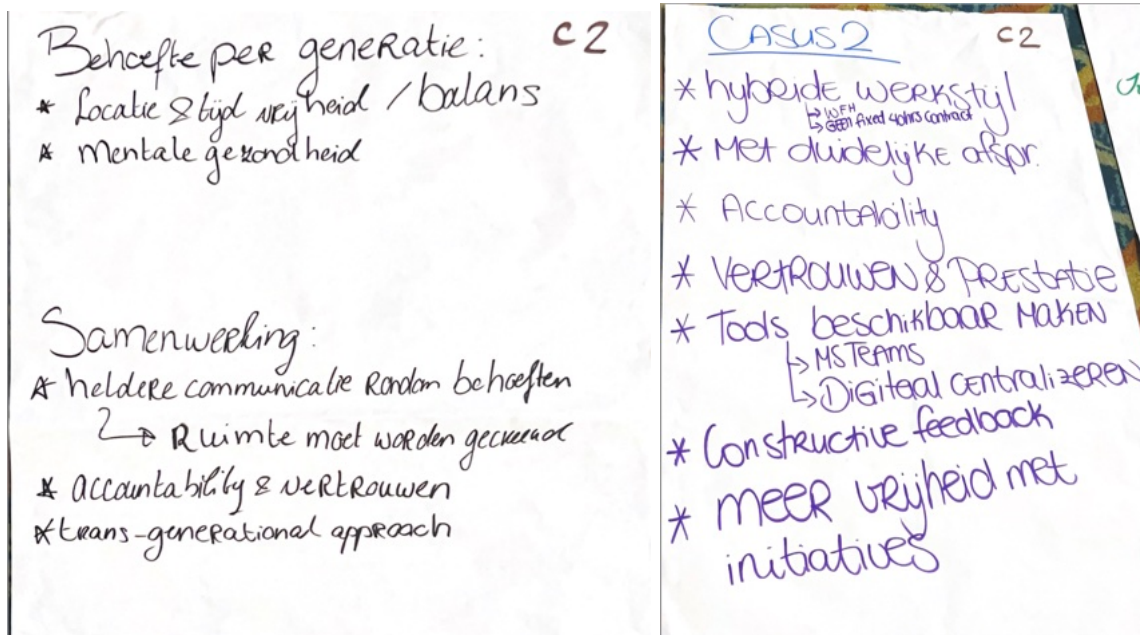 Behoefte per generatie: C2
* Locatie & tijd vrijheid / balans
* Mentale gezondheid
Samenwerking:
* heldere communicatie rondom behoeften
↳ Ruimte moet worden gecreeerd
* accountability & vertrouwen
* trans-generational approach
CASUS 2 C2
* hybride werkstijl
↳ WFH
↳ GEEN fixed 40hrs contract
* Met duidelijke afspr.
* Accountability
* Vertrouwen & Prestatie
* Tools beschikbaar maken
↳ MS TEAMS
↳ Digitaal centralizeren
* Constructive feedback
* meer vrijheid met
initiatives